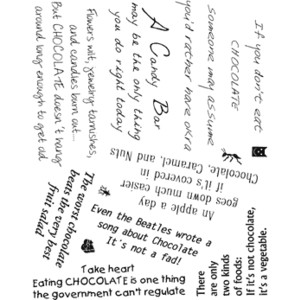 Flowers wilt, jewelry tarnishes,
and candles burn out...
But CHOCOLATE doesn't hang
around long enough to get old.
A Candy Bar
may be the only thing
you do right today
If you don't eat
CHOCOLATE
someone may assume
you'd rather have okra
An apple a day
goes down much easier
if it's covered in
Chocolate, Caramel, and Nuts
The worst chocolate
beats the very best
fruit salad
Even the Beatles wrote a
song about Chocolate
It's not a fad!
Take heart
Eating CHOCOLATE is one thing
the government can't regulate
There
are only
two kinds
of foods:
If it's not chocolate,
it's a vegetable.